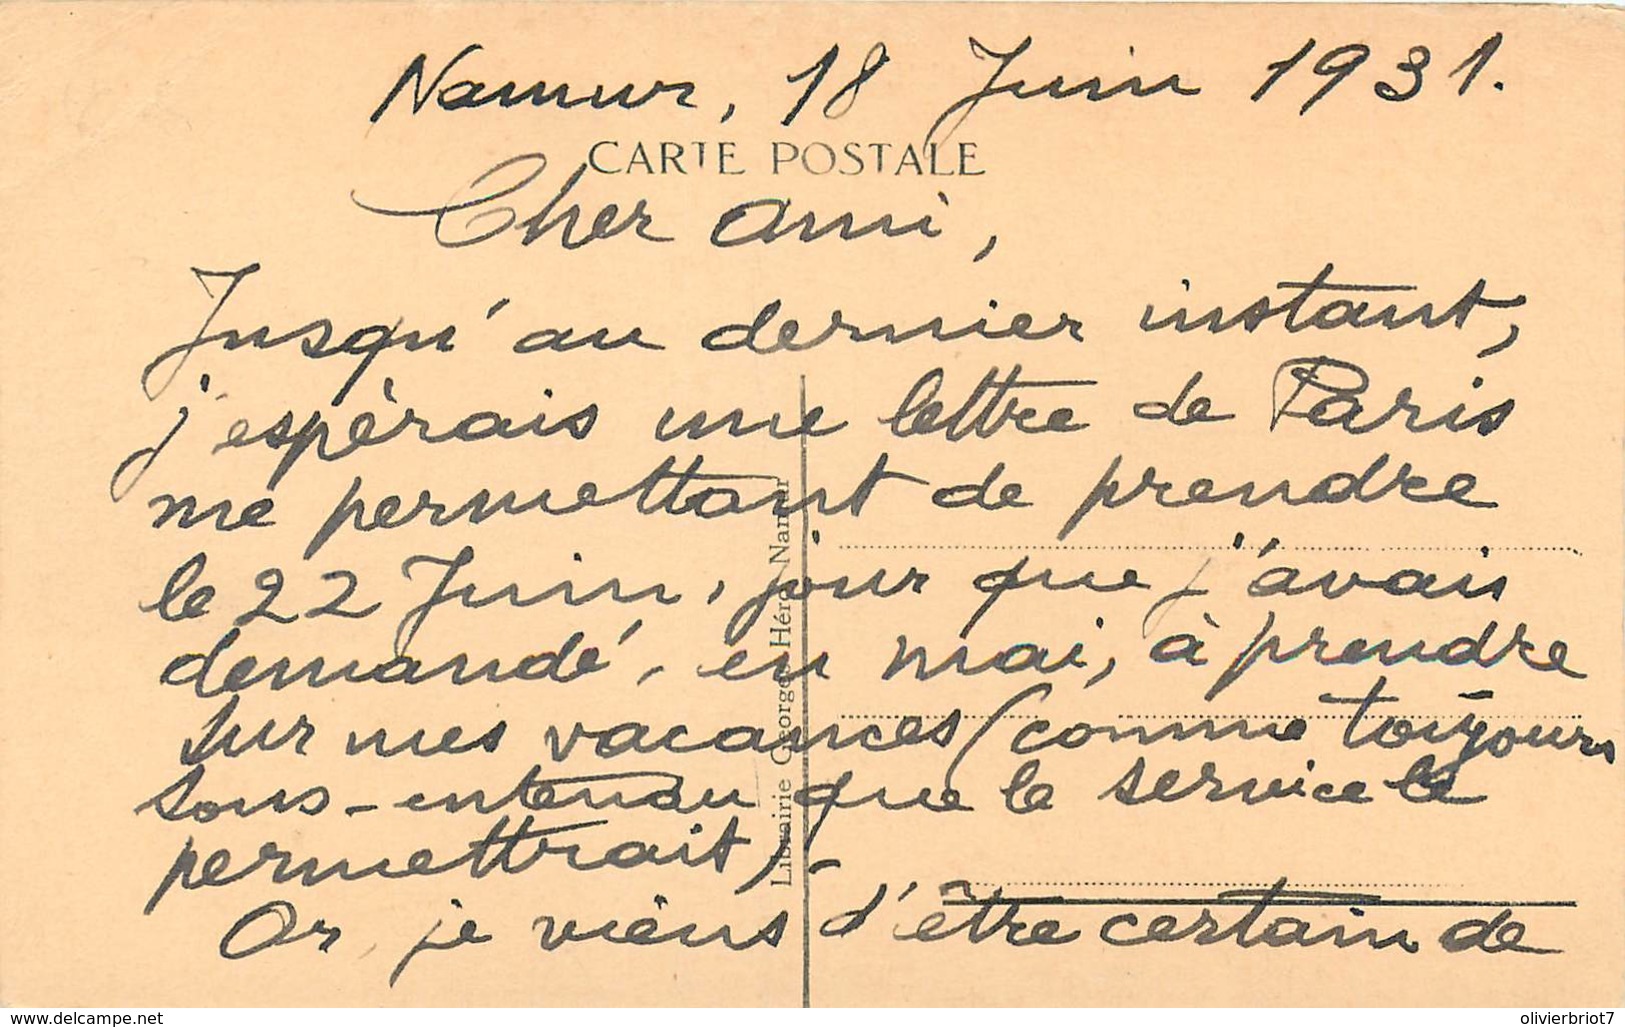 Namur, 18 Juin 1931.
CARTE POSTALE
Cher ami,
Jusqu'au dernier instant,
j'espèrais une lettre de Paris
me permettant de prendre
le 22 Juin, jour que j'avais
demandé, en mai, à prendre
sur mes vacances (comme toujours
sous-entendu que le service le
permettrait).-
Or, je viens d'être certain de
Librairie Georges Héro, Namur
www.delcampe.net
olivierbriot7